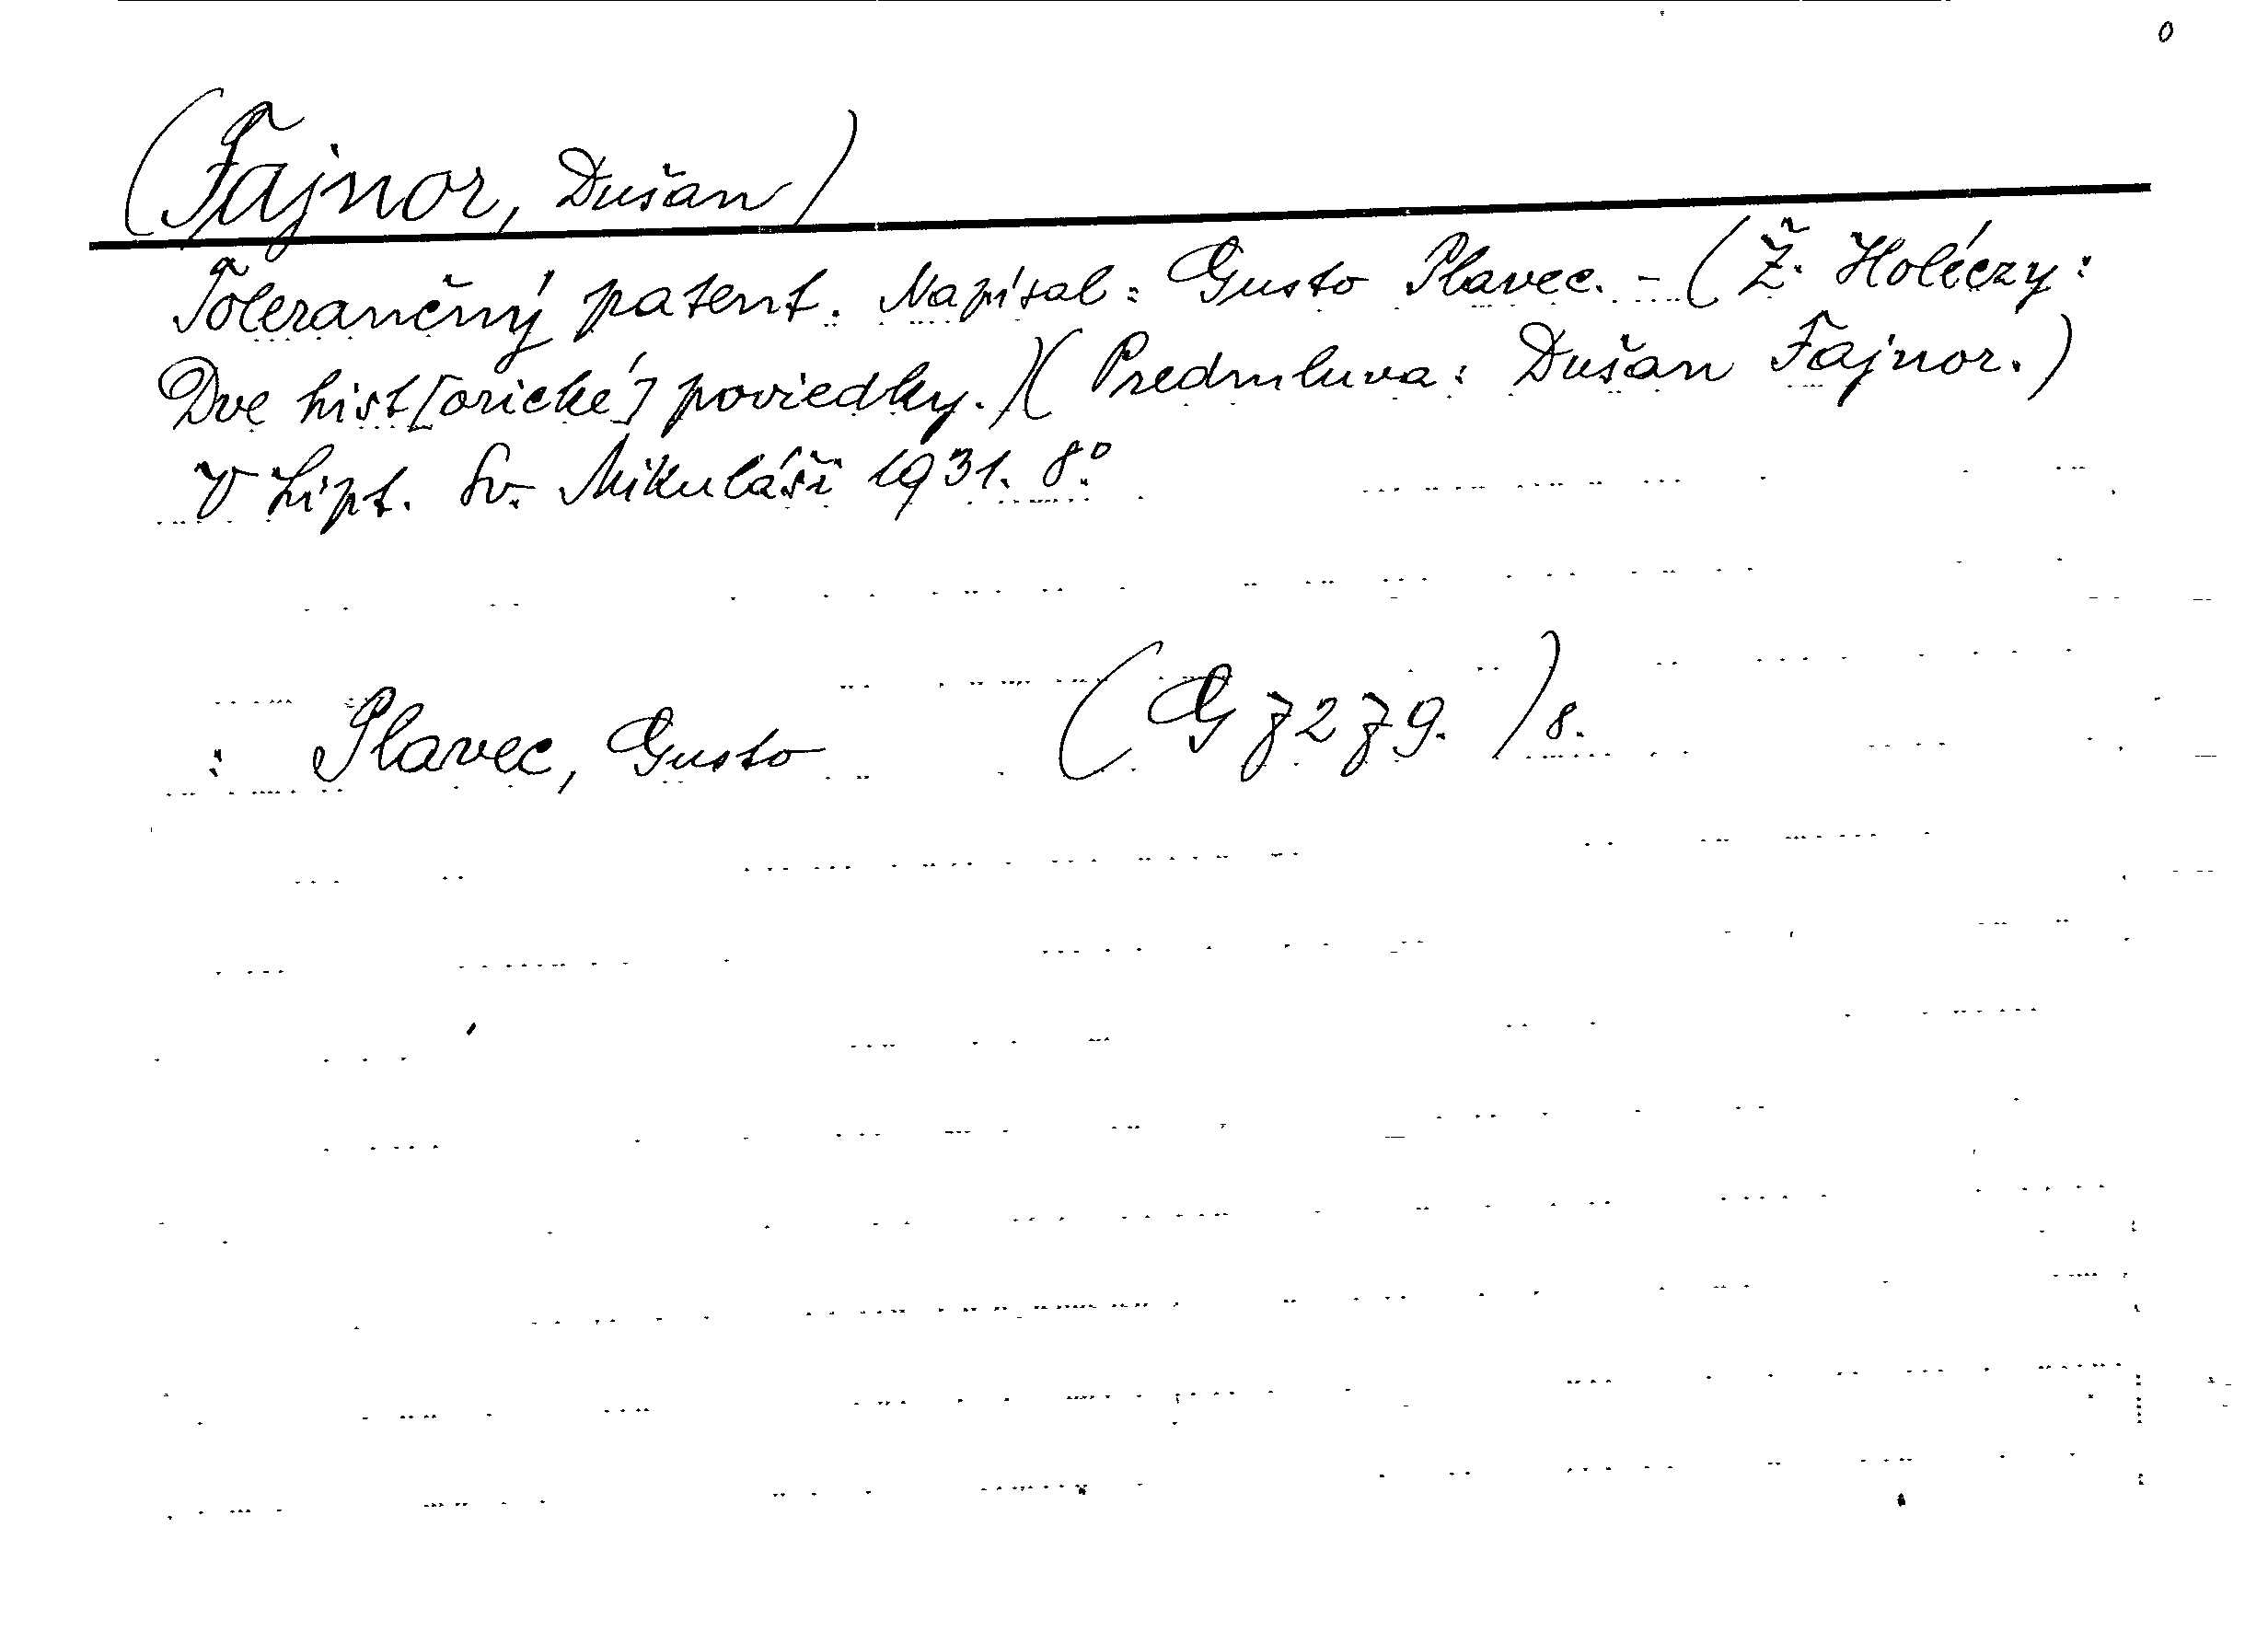 0
(Fajnor, Dušan)
Tolerančný patent. Napísal: Gusto Plavec. - (Ž. Holéczy:
Dve hist[orické] poviedky.)(Predmluva: Dušan Fajnor.)
V Lipt. Sv. Mikuláši 1931. 8°.
: Plavec, Gusto (G 7279.)8.